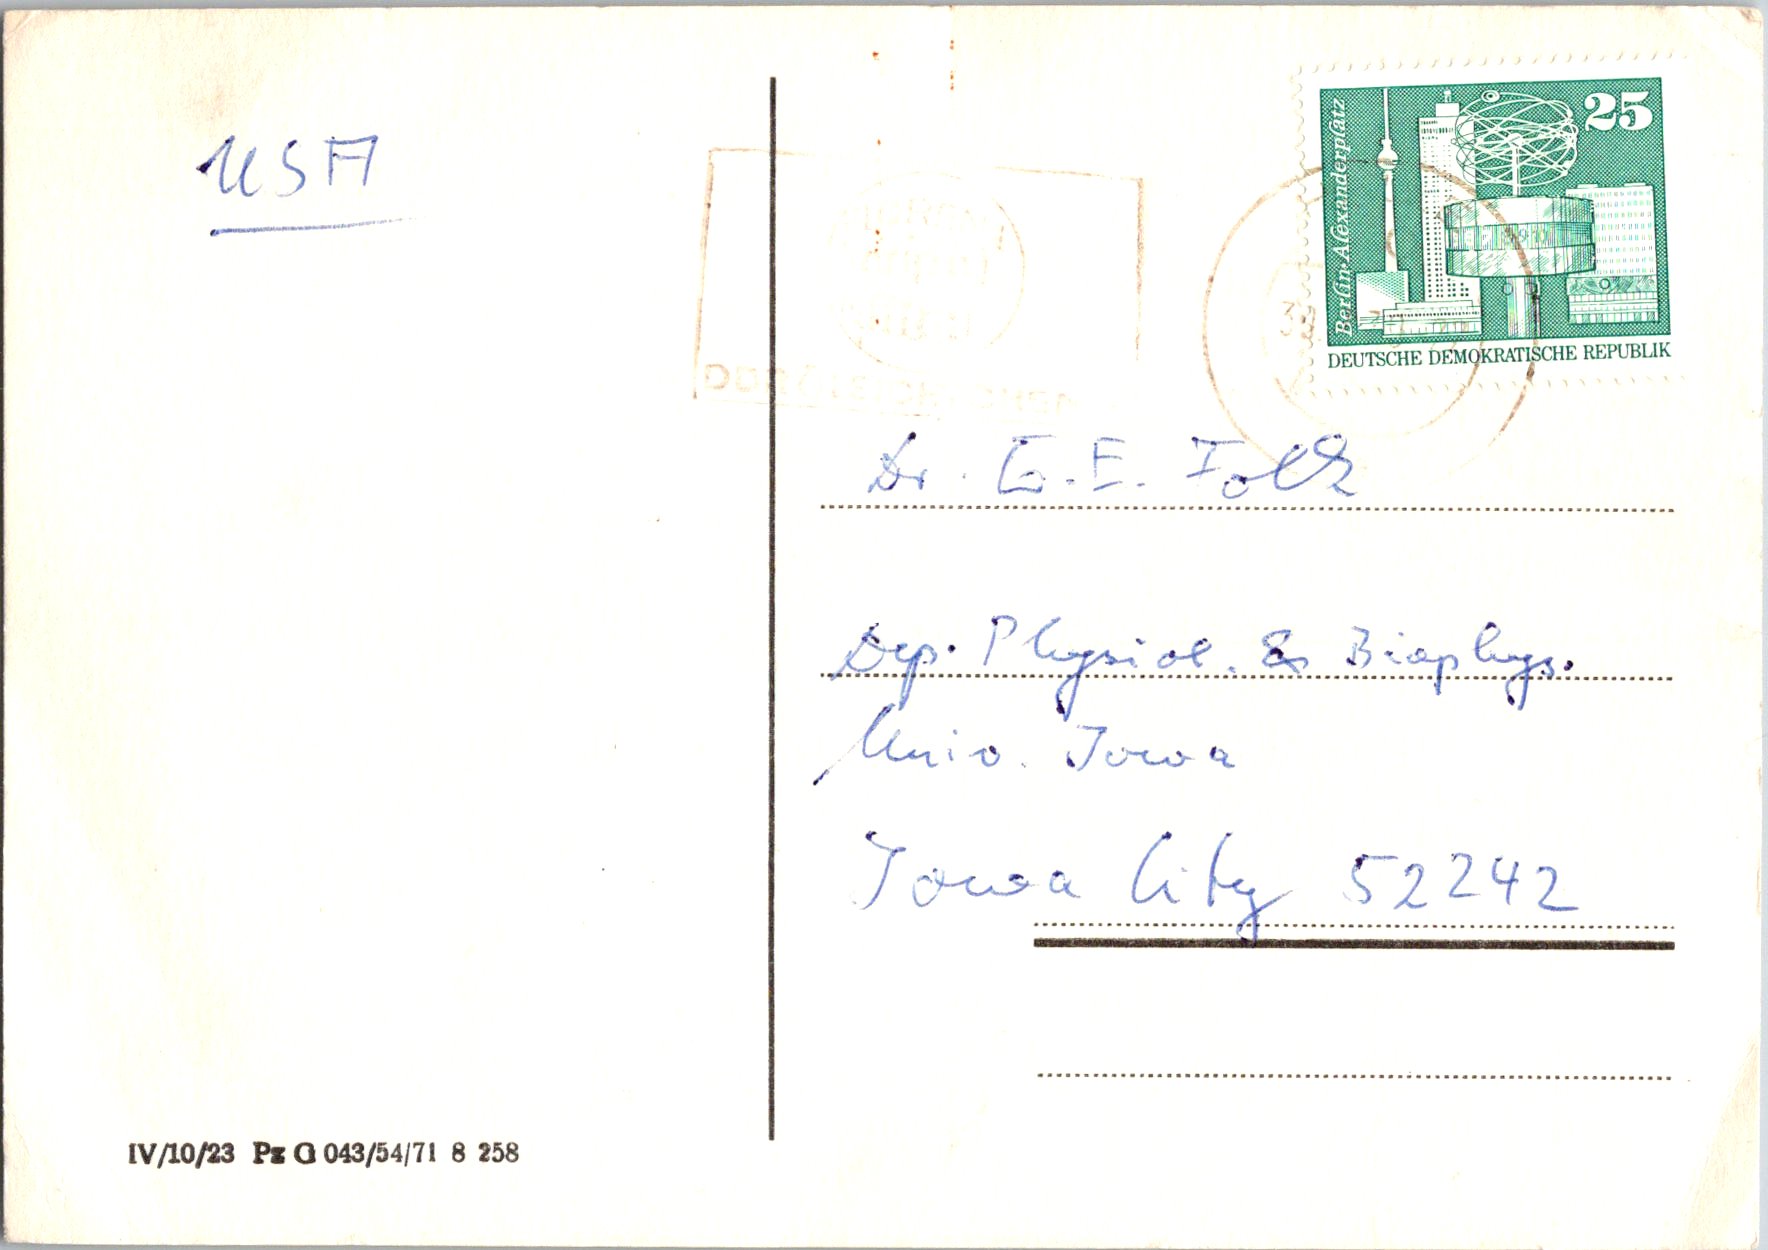 USA
25
Berlin-Alexanderplatz
DEUTSCHE DEMOKRATISCHE REPUBLIK
Dr. G. E. Folk
Dep. Physiol. & Biophys.
Univ. Iowa
Iowa City 52242
IV/10/23 Pz G 043/54/71 8 258